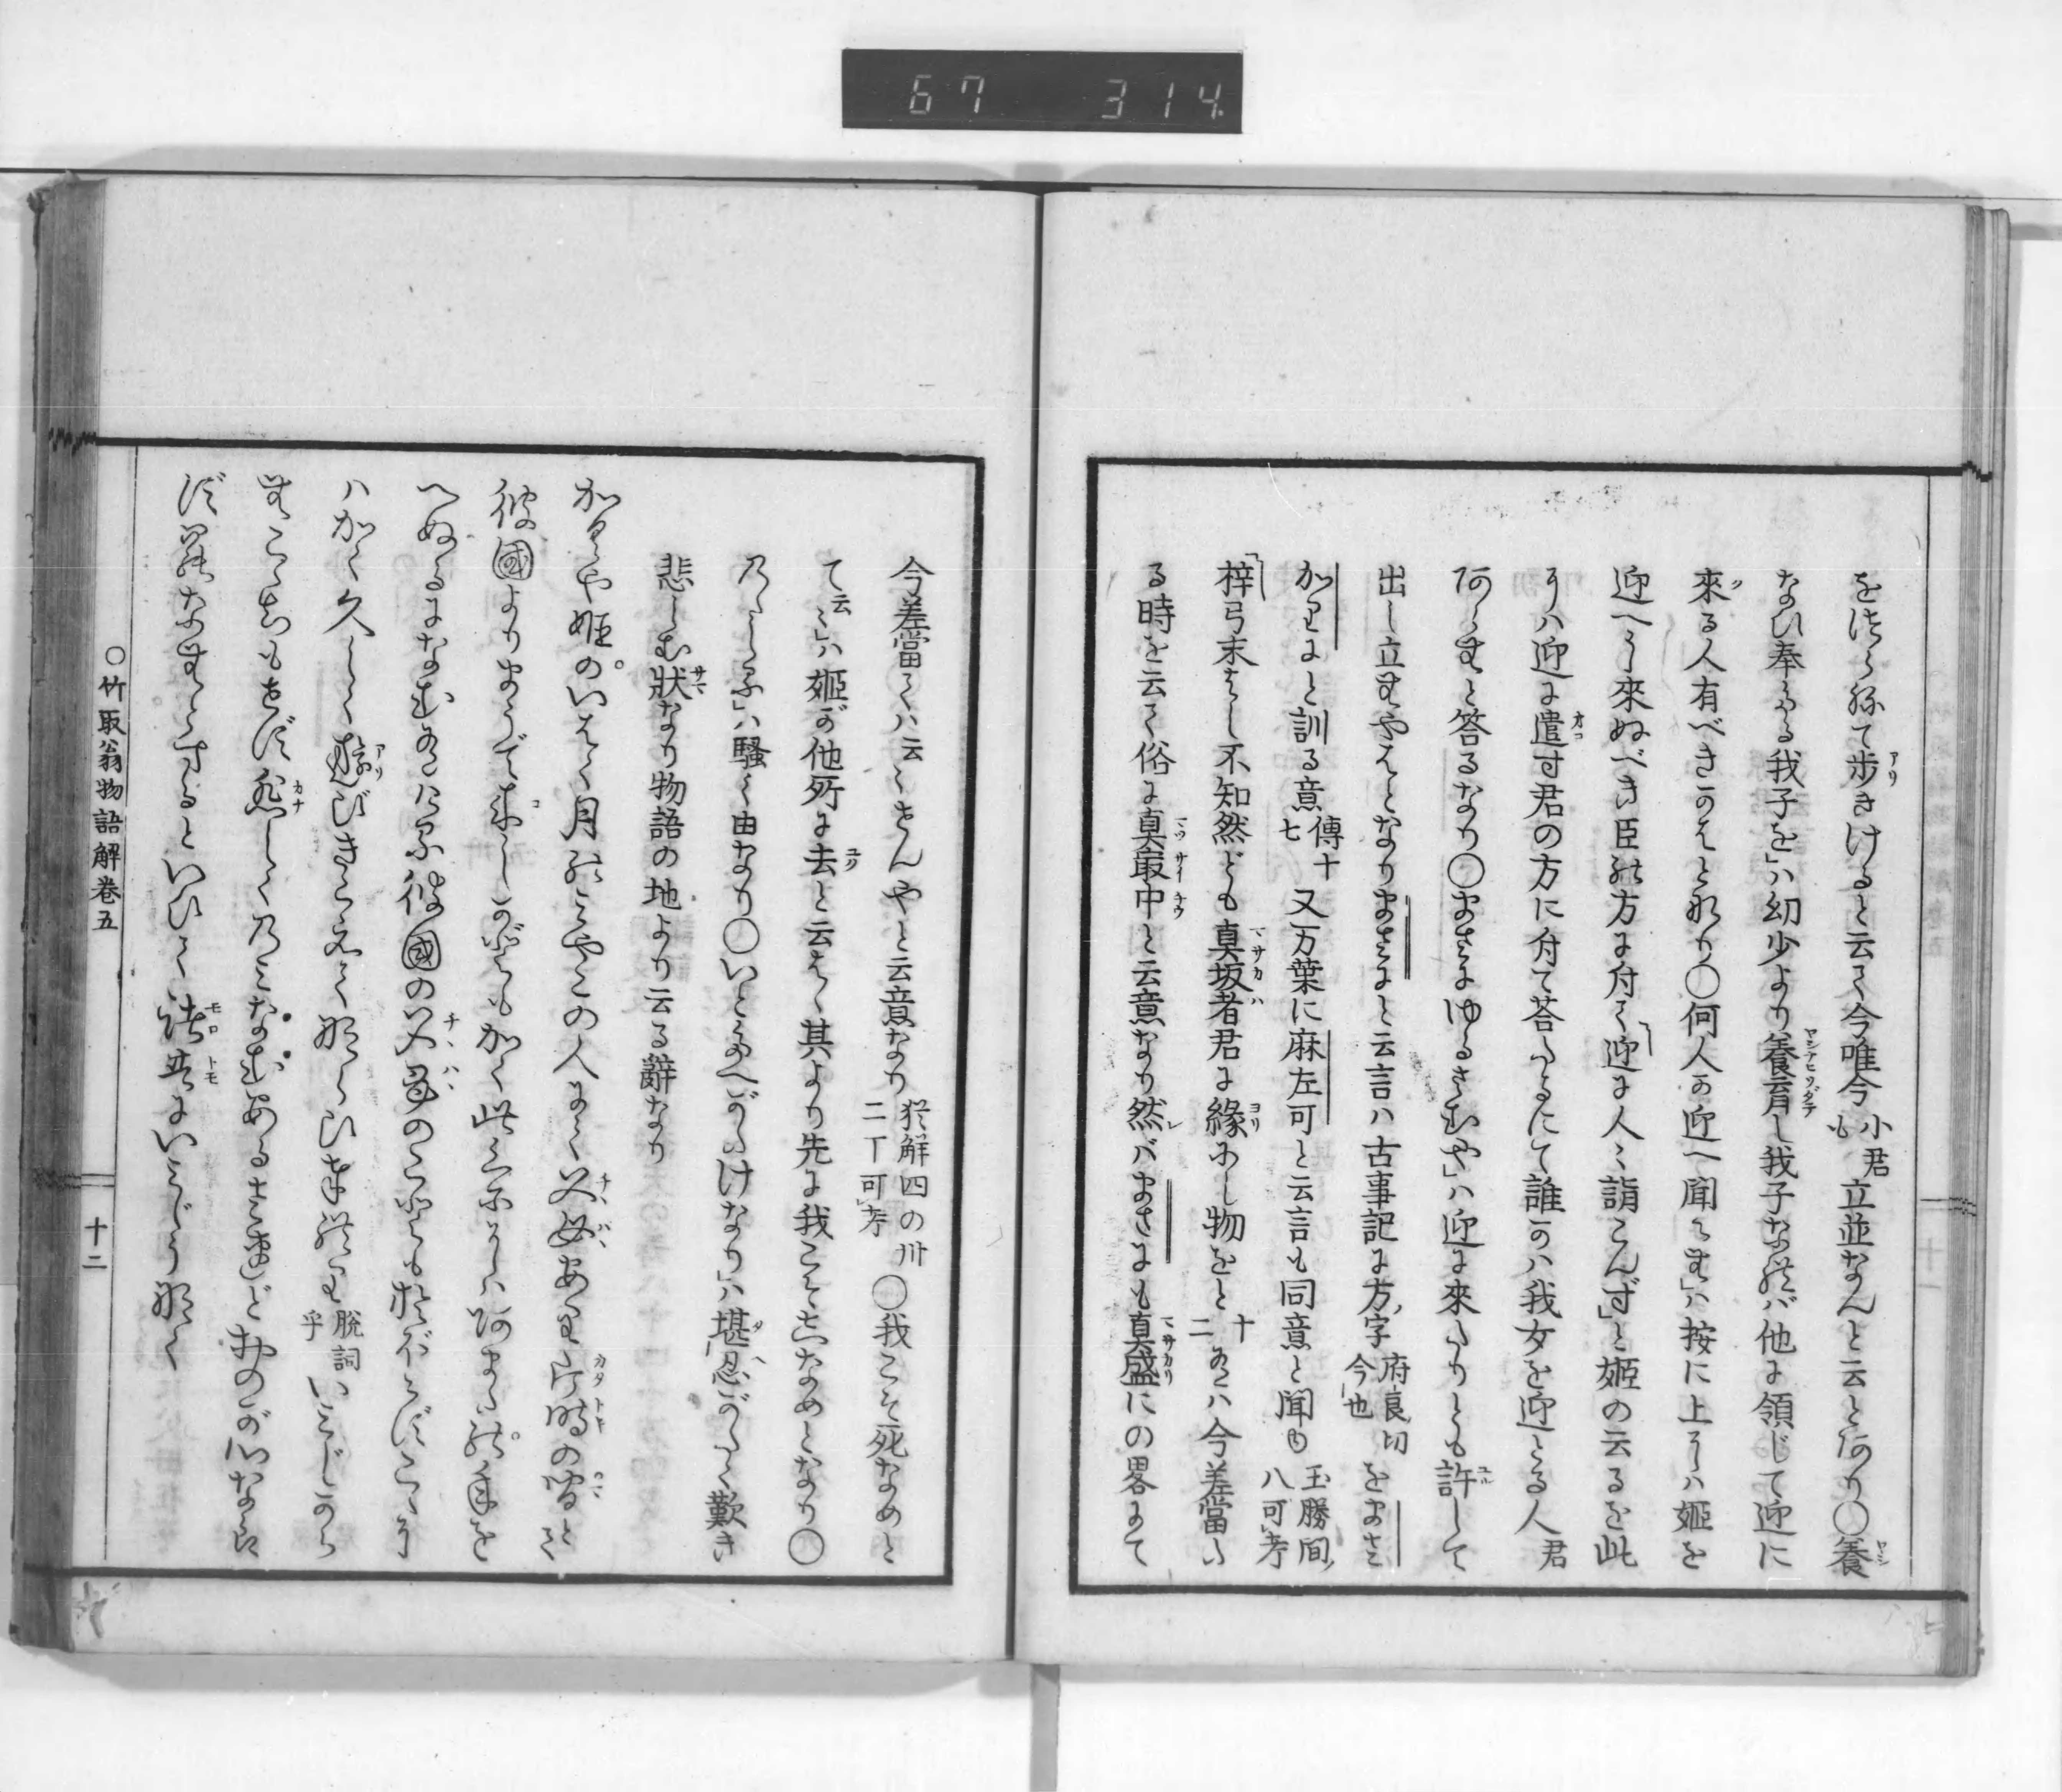 67 314
を͏つらねて歩きけると云て今唯今小君も立並なんと云となり○養
なひ奉りたる我子を」ハ幼少より養育し我子なれバ他に領じて迎に
來る人有べきかはと なり○何人か迎へ聞えむ」ハ按に上にハ姫を
迎へに來ぬべき臣の方に付て迎に人々詣こんず」と姫の云るを此
にハ迎に遣す君の方に付て荅たるにて誰かハ我女を迎とる人君
あらむと答るなり○まさにゆるさむや」ハ迎に來たりとも許して
出し立むやはとなりまさにと云言ハ古事記に方字府良切今也をまさに
かりにと訓る意傳十七又万葉に麻左可と云言も同意と聞ゆ玉勝間八可考
「梓弓末はし不知然ども真坂者君に緣にし物をと十二あるハ今差當れ
る時を云て俗に真最中と云意なり然バまさにも真盛にの畧にて
今差當てハ云々せんやと云意なり猶解四の卅二丁可考○我こそ死なめと
て云々」ハ姫が他所に去と云はゝ其より先に我こそ志なめとなり○
乃ゝしる」ハ騒く由なり○いとたへがたけなり」ハ堪忍がたく歎き
悲しむ狀なり物語の地より云る辭なり
かくや姫のいはく月のみやこの人にて父母あり片時の間とて
彼國よりまうで來しかども かく此国にハあまたの年を
へぬるになむありける彼國の父母のこともおぼえずこゝに
ハかく久しく遊びきこえてならひ奉れり脱詞乎いみじから
むこゝちもせず悲しくのみなむあるされどおのが心なら
ずまかりなむとするといひて諸共にいみじうなく
○竹取翁物語解卷五
十二